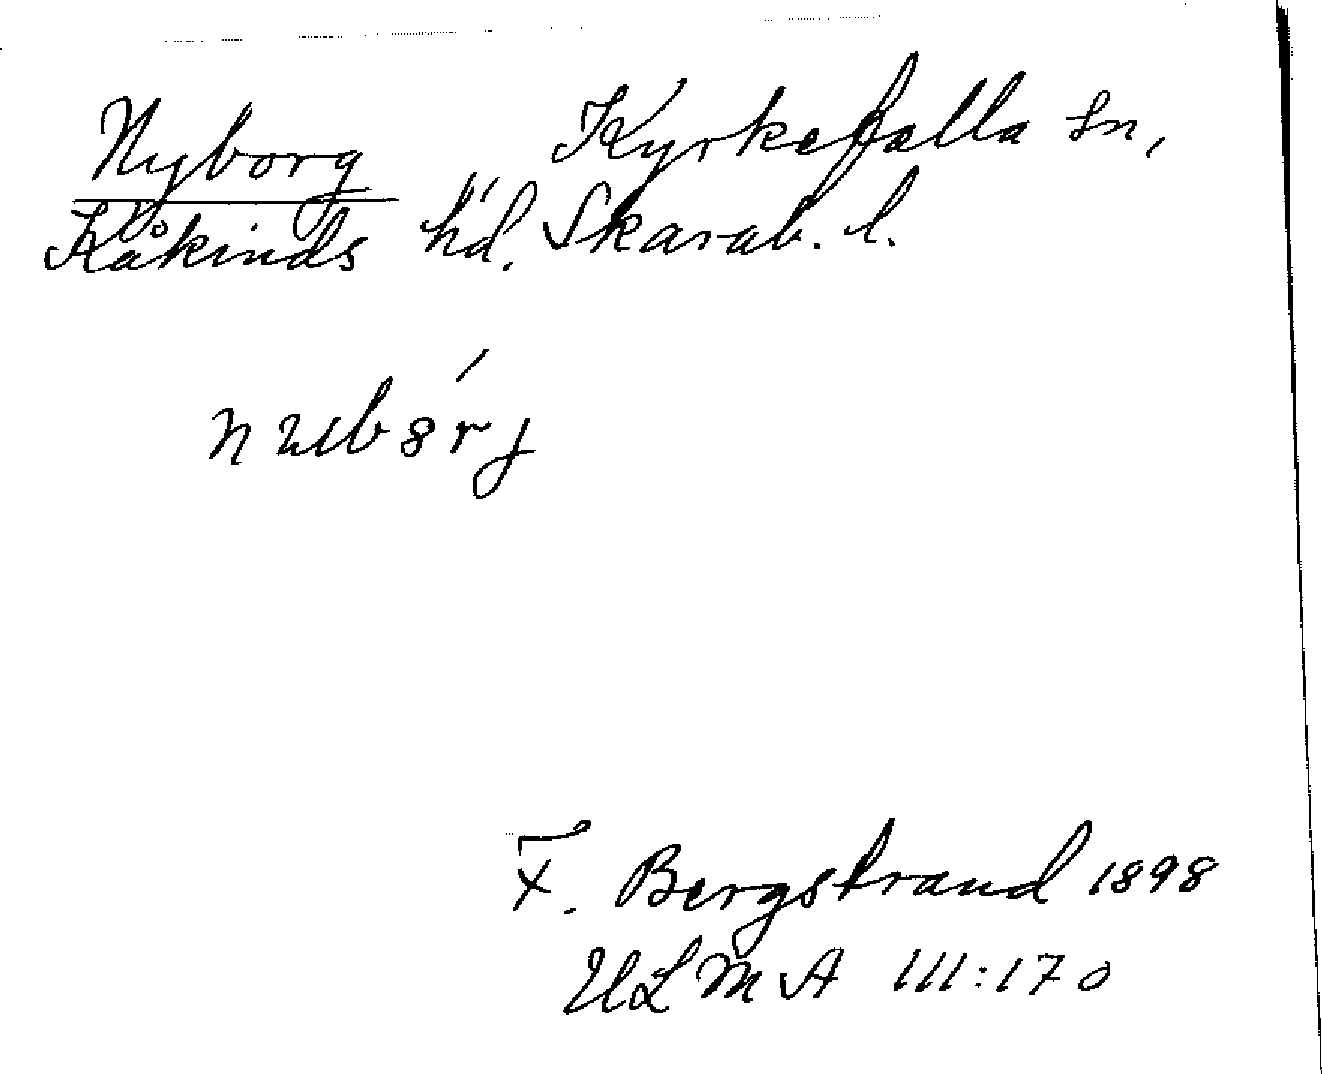 Nyborg Kyrkefalla sn,
Kåkinds hd. Skarab. l.
F. Bergstrand 1898
ULMA 111:170